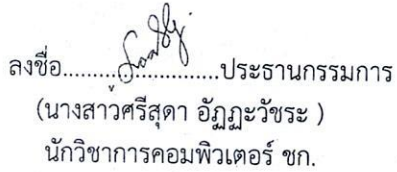 ลงชื่อ.............................ประธานกรรมการ
(นางสาวศรีสุดา อัฏฏะวัชระ )
นักวิชาการคอมพิวเตอร์ ชก.